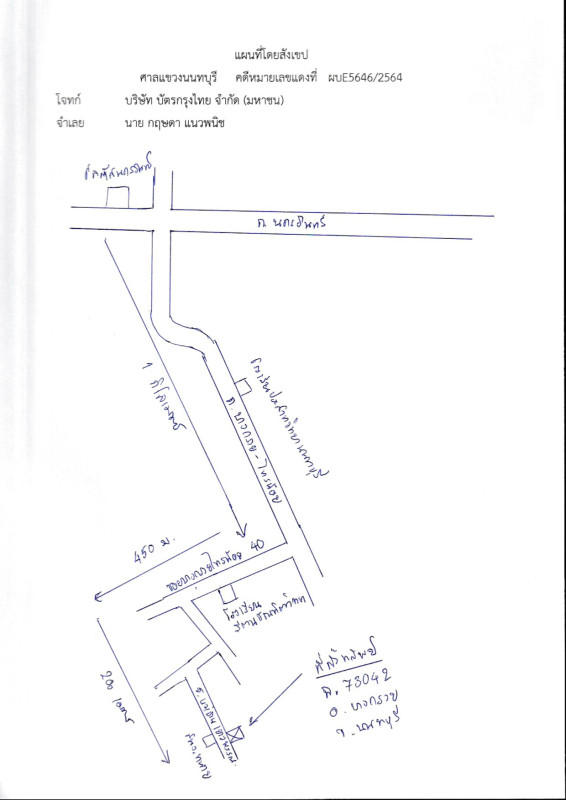 แผนที่โดยสังเขป
ศาลแขวงนนทบุรี คดีหมายเลขแดงที่ ผบE5646/2564
โจทก์ บริษัท บัตรกรุงไทย จำกัด (มหาชน)
จำเลย นาย กฤษดา แนวพนิช
ถ. นครอินทร์
1 กิโลเมตร
ถ. บางกรวย - ไทรน้อย
450 ม.
ซอยบางกรวยไทรน้อย 40
โรงเรียน
200 เมตร
ที่ตั้งทรัพย์
ฉ. 73042
อ. บางกรวย
จ. นนทบุรี